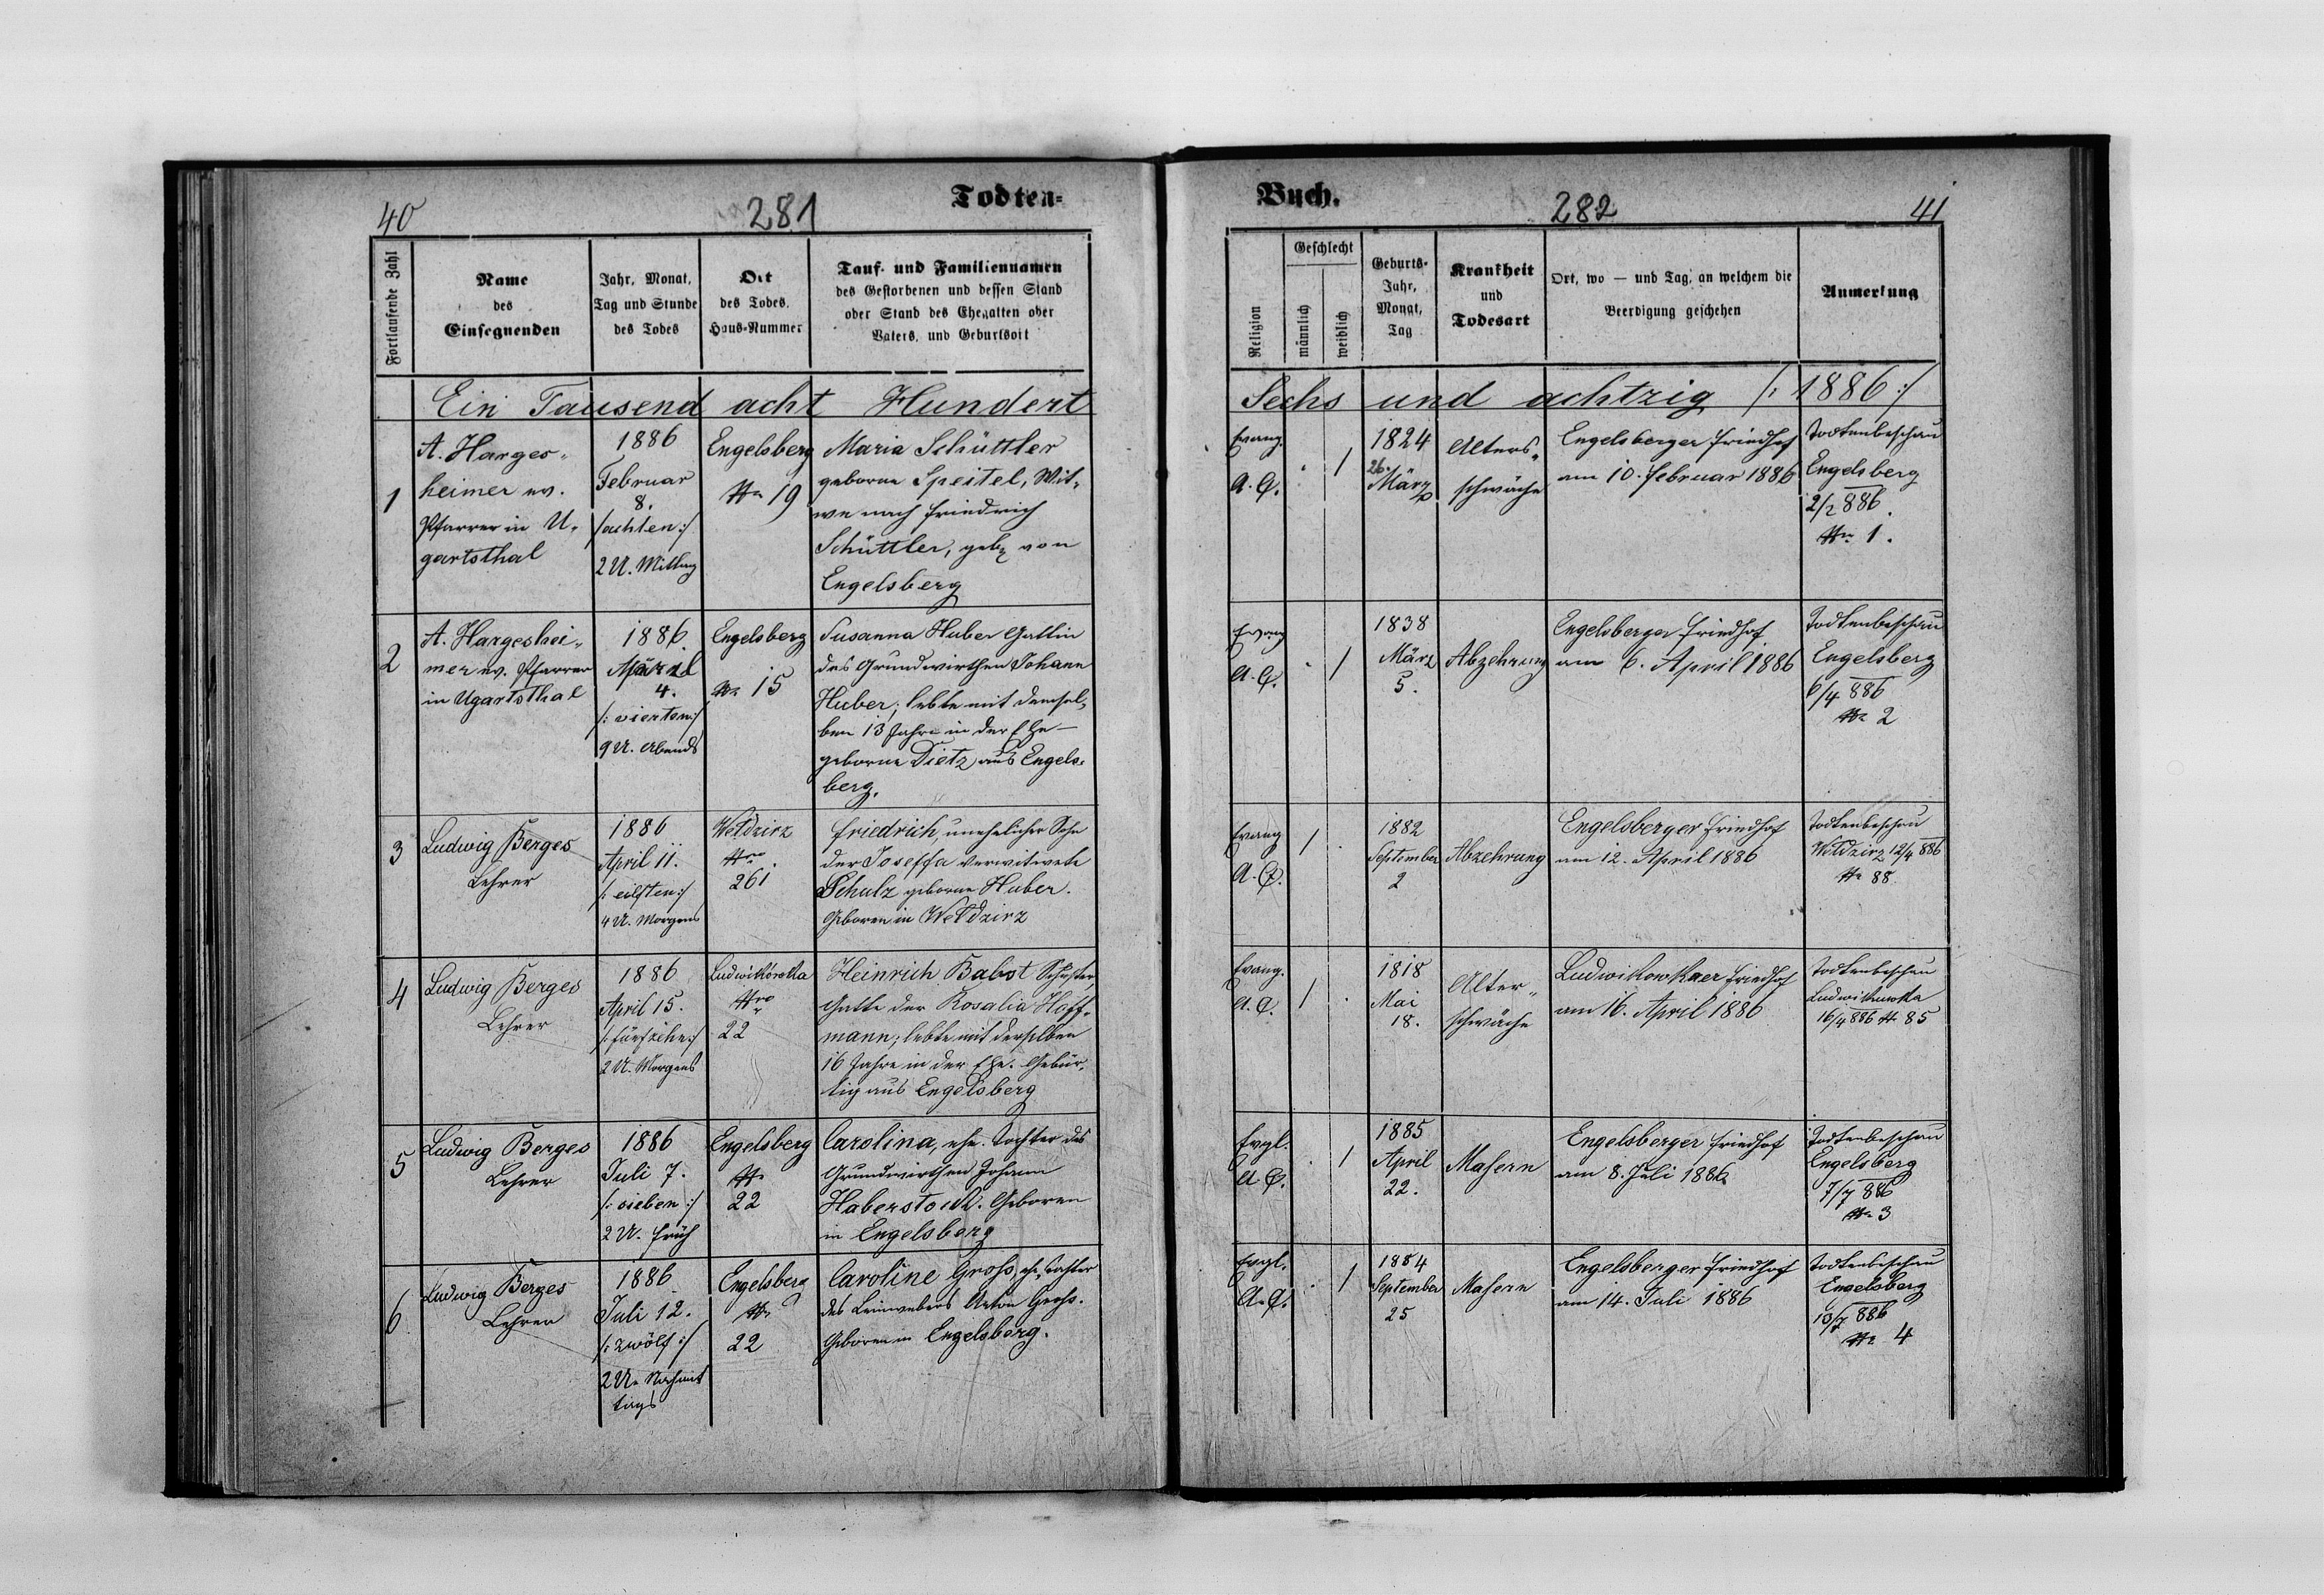 40
281
Todten=
Fortlaufende Zahl
Name
des
Einsegnenden
Jahr, Monat,
Tag und Stunde
des Todes
Ort
des Todes,
Haus-Nummer
Tauf- und Familiennamen
des Gestorbenen und dessen Stand
oder Stand des Ehegatten oder
Vaters, und Geburtsort
Ein Tausend acht Hundert
1
A. Harges-
heimer ev.
Pfarrer in U-
gartsthal
1886
Februar
8.
/:achten:/
2 U. Mittag
Engelsberg
Nr 19
Maria Schüttler
geborne Speitel, Wit-
we nach Friedrich
Schüttler, geb. von
Engelsberg
2
A. Hargeshei-
mer ev. Pfarrer
in Ugartsthal
1886.
4.
/:vierten:/
9 U. Abends
Engelsberg
Nr 15
Susanna Huber Gattin
des Grundwirthen Johann
Huber; lebte mit demsel-
ben 13 Jahre in der Ehe –
geborne Dietz aus Engels-
berg.
3
Ludwig Berges
Lehrer
1886
April 11.
/:eilften:/
4 U. Morgens
Weldzirz
Nro
261
Friedrich, unehelicher Sohn
der Joseffa verwitwete
Schulz geborne Huber.
Geboren in Weldzirz
4
Ludwig Berges
Lehrer
1886
April 15.
/:fünfzehn:/
2 U. Morgens
Ludwikówka
Nro
22
Heinrich Babst Schuster,
Gatte der Rosalia Hoff-
mann; lebte mit derselben
16 Jahre in der Ehe. Gebür-
tig aus Engelsberg
5
Ludwig Berges
Lehrer
1886
Juli 7.
/:sieben:/
2 U. früh
Engelsberg
Nr
22
Carolina, ehe. Tochter des
Grundwirthen Johann
Haberstock. Geboren
in Engelsberg
6
Ludwig Berges
Lehrer
1886
Juli 12.
/:zwölf:/
2 U. Nachmit
tags
Engelsberg
Nr
22
Caroline Groß, ehe. Tochter
des Leinwebers Anton Groß.
Geboren in Engelsberg.
Buch.
282
41
Religion
Geschlecht
männlich
weiblich
Geburts-
Jahr,
Monat,
Tag
Krankheit
und
Todesart
Ort, wo — und Tag, an welchem die
Beerdigung geschehen
Anmerkung
Sechs und achtzig /: 1886 :/
Evang.
A. C.
1
1824
26.
März
Alters-
schwäche
Engelsberger Friedhof
am 10. Februar 1886
Todtenbeschau
Engelsberg
2/2 886.
Nr 1.
Evang
A. C.
1
1838
März
5.
Abzehrung
Engelsberger Friedhof
am 6. April 1886
Todtenbeschau
Engelsberg
6/4 886
Nr 2
Evang
A. C.
1
1882
September
2
Abzehrung
Engelsberger Friedhof
am 12. April 1886
Todtenbeschau
Weldzirz 12/4 886
Nr 88.
Evang.
A. C.
1
1818
Mai
18.
Alter-
schwäche
Ludwikowkaer Friedhof
am 16. April 1886
Todtenbeschau
Ludwikowka
16/4 886 Nr 85
Evgl.
A. C.
1
1885
April
22.
Masern
Engelsberger Friedhof
am 8. Juli 1886
Todtenbeschau
Engelsberg
7/7 886
Nr 3
Evgl.
A. C.
1
1884
September
25
Masern
Engelsberger Friedhof
am 14. Juli 1886
Todtenbeschau
Engelsberg
13/7 886
Nr 4